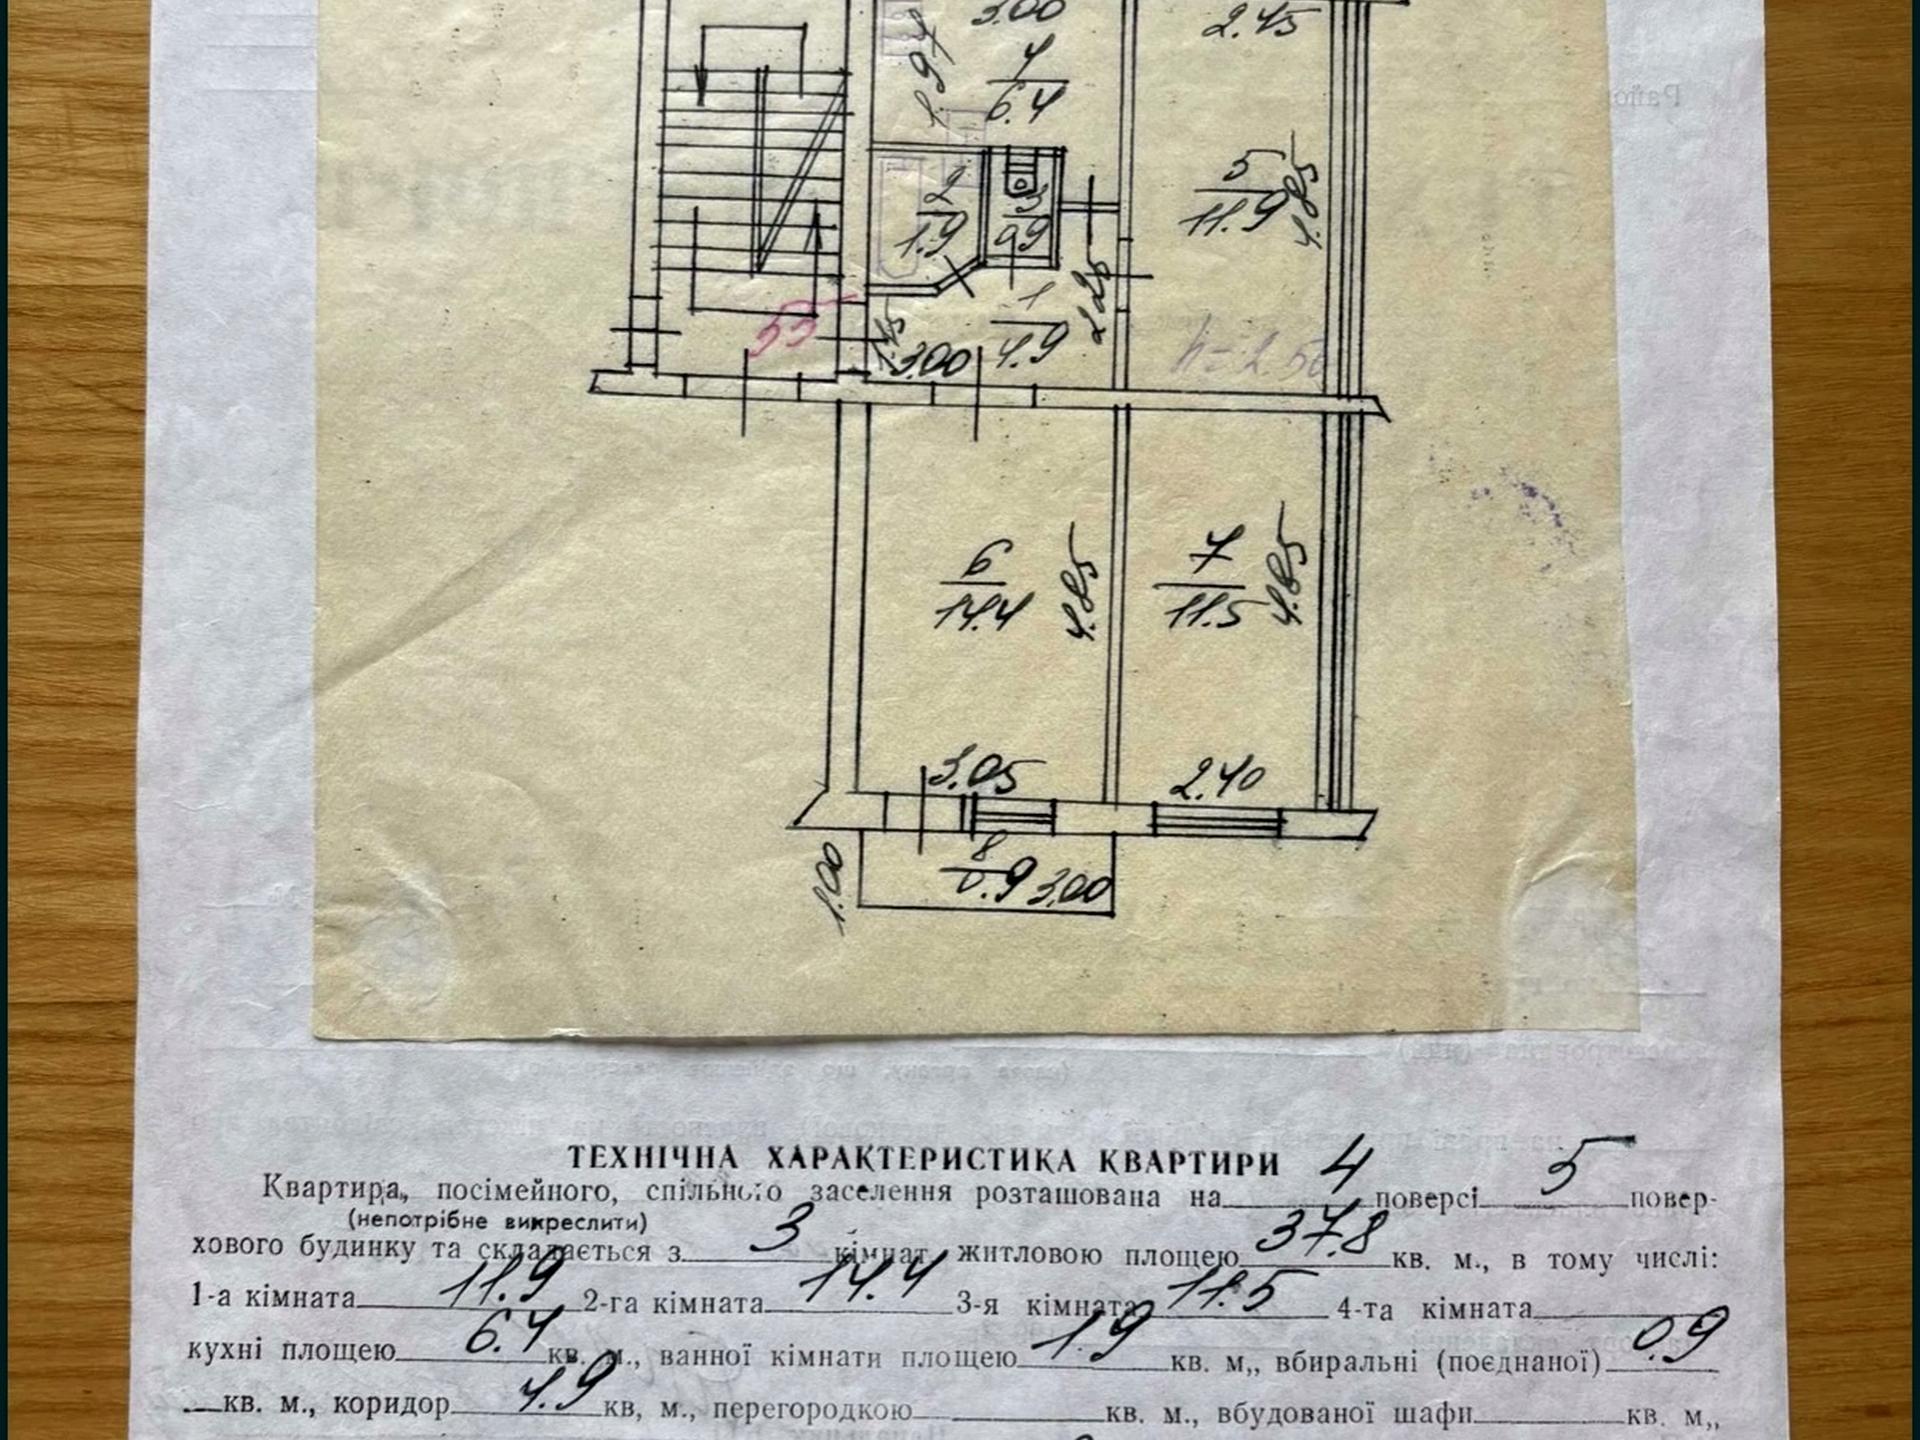 3.00
2.45
1.97
4
6.4
5
11.9
4.85
2
1.9
3
0.9
1
4.9
2.25
55
1.45
3.00
h=2.50
6
14.4
4.85
7
11.5
4.85
3.05
2.40
8
0.9
3.00
1.00
ТЕХНІЧНА ХАРАКТЕРИСТИКА КВАРТИРИ
Квартира, посімейного, спільного заселення розташована на 4 поверсі 5 повер-
(непотрібне викреслити)
хового будинку та складається з 3 кімнат житловою площею 37.8 кв. м., в тому числі:
1-а кімната 11.9 2-га кімната 14.4 3-я кімната 11.5 4-та кімната
кухні площею 6.4 кв. м., ванної кімнати площею 1.9 кв. м,, вбиральні (поєднаної) 0.9
кв. м., коридор 4.9 кв, м., перегородкою кв. м., вбудованої шафи кв. м,,